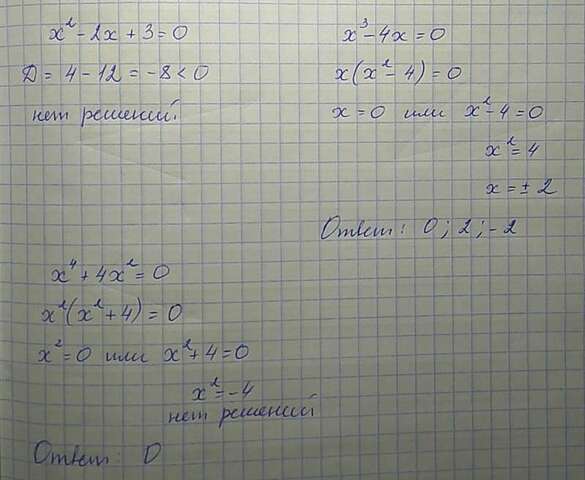 x² - 2x + 3 = 0
D = 4 - 12 = -8 < 0
нет решений.
x³ - 4x = 0
x(x² - 4) = 0
x = 0 или x² - 4 = 0
x² = 4
x = ± 2
Ответ: 0; 2; -2
x⁴ + 4x² = 0
x²(x² + 4) = 0
x² = 0 или x² + 4 = 0
x² = -4
нет решений
Ответ: 0